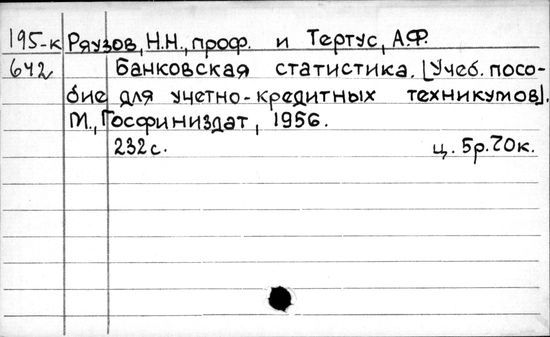 195-к Ряузов, Н.Н., проф. и Тертус, А.Ф.
642 Банковская статистика. [Учеб. посо-
бие для учетно-кредитных техникумов].
М., Госфиниздат, 1956.
232 с. ц. 5р.70к.